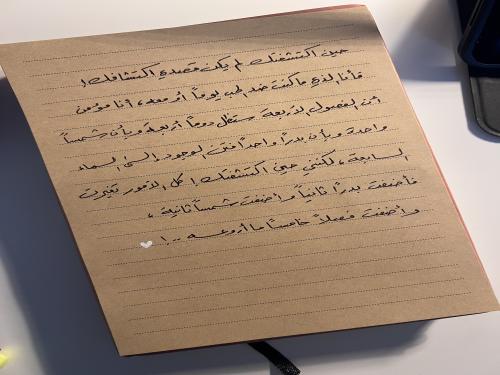 حين اكتشفتك لم يكن قصدي اكتشافك !
فأنا الذي ما كنت ضد الحب يوماً أو معه ، أنا مؤمن
أن الفصول الأربعة ستظل دوماً أربعة وبأن شمساً
واحدة وبأن بدراً واحداً فتن الوجود إلى السماء
السابعة ، لكنني حين اكتشفتك ! كل الأمور تغيرت
فأضفت بدراً ثانياً وأضفت شمساً ثانية ،
وأضفت فصلاً خامساً ما أروعه .. !